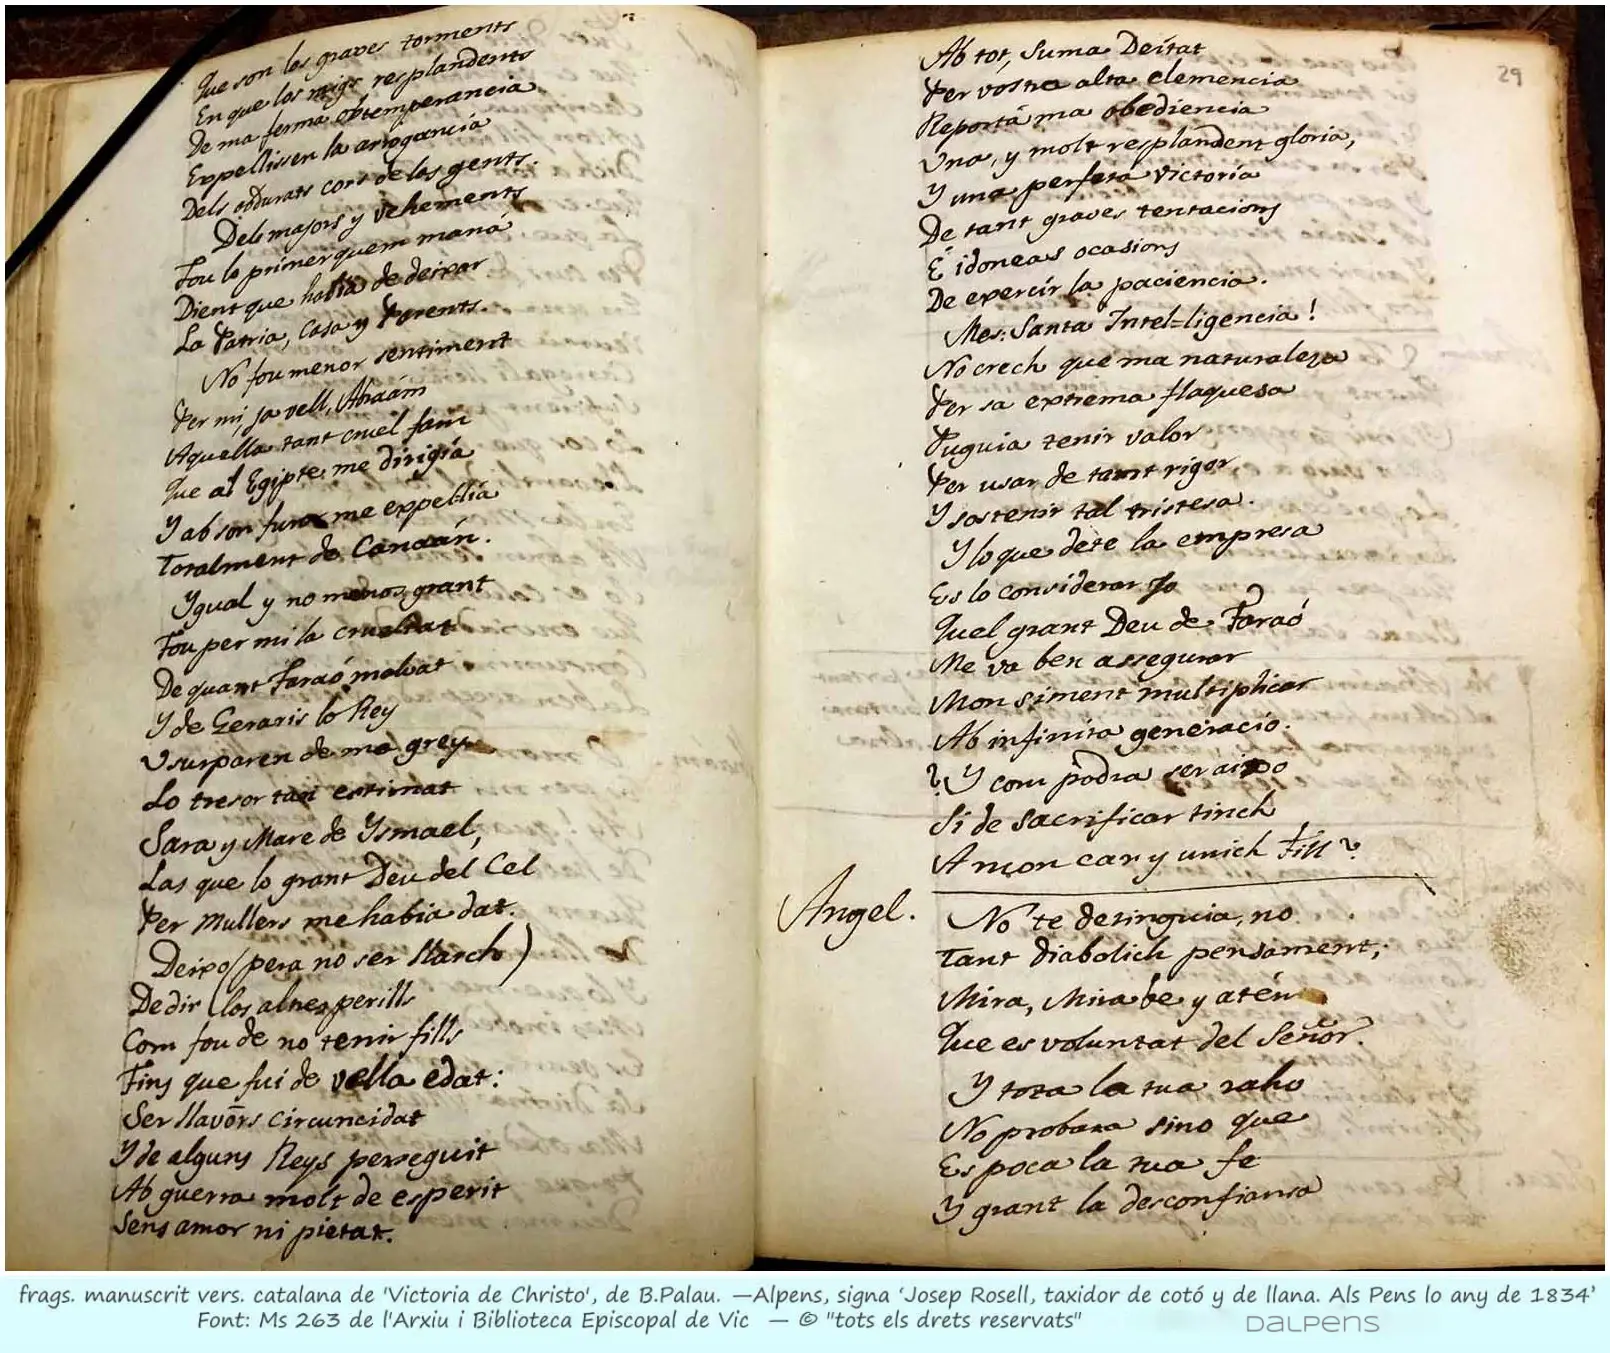 Que son les graves torments
En que los migs resplandents
De ma ferma obtemperancia
Expellissen la arrogancia
Dels obdurats cors de les gents.
Dels majors y vehements
Fou lo primer quem maná
Dient que habia de deixar
La Patria, casa y Parents.
No fou menor sentiment
Per mi, ja vell, Abraám
Aquella tant cruel fam
Que al Egipte me dirigía
Y ab son furor me expel-lía
Totalment de Canaán.
Ygual y no menos grant
Fou per mi la crueltat
De quant Faraó malvat
Y de Geraris lo Rey
Usurparen de ma grey
Lo tresor tan estimat
Sara y Mare de Ysmael,
Las que lo grant Deu del Cel
Per Mullers me habia dat.
Deixo (pera no ser llarch)
De dir los altres perills
Com fou de no tenir fills
Fins que fui de vella edat:
Ser llavõrs circuncidat
Y de alguns Reys perseguit
Ab guerra molt de esperit
Sens amor ni pietat.
29
Ab tot, Suma Deitat
Per vostra alta clemencia
Reportá ma obediencia
Una, y molt resplandent gloria,
Y una perfeta victoria
De tant graves tentacions
E idoneas ocasions
De exercir la paciencia.
Mes: Santa Intel-ligencia!
No crech que ma naturaleza
Per sa extrema flaquesa
Puguia tenir valor
Per usar de tant rigor
Y sostenir tal tristesa.
Y lo que dete la empresa
Es lo considerar Jo
Quel grant Deu de Faraó
Me va ben assegurar
Mon siment multiplicar
Ab infinita generació.
? Y com podra ser aixo
Si de sacrificar tinch
A mon car y unich Fill?
Angel. No te detinguia, no
Tant diabolich pensament;
Mira, Mira be y atén
Que es voluntat del Señor.
Y tota la tua raho
No probara sino que
Es poca la tua fe
Y grant la desconfiansa
frags. manuscrit vers. catalana de 'Victoria de Christo', de B.Palau. —Alpens, signa ‘Josep Rosell, taxidor de cotó y de llana. Als Pens lo any de 1834’
Font: Ms 263 de l'Arxiu i Biblioteca Episcopal de Vic — © "tots els drets reservats"
DALPENS